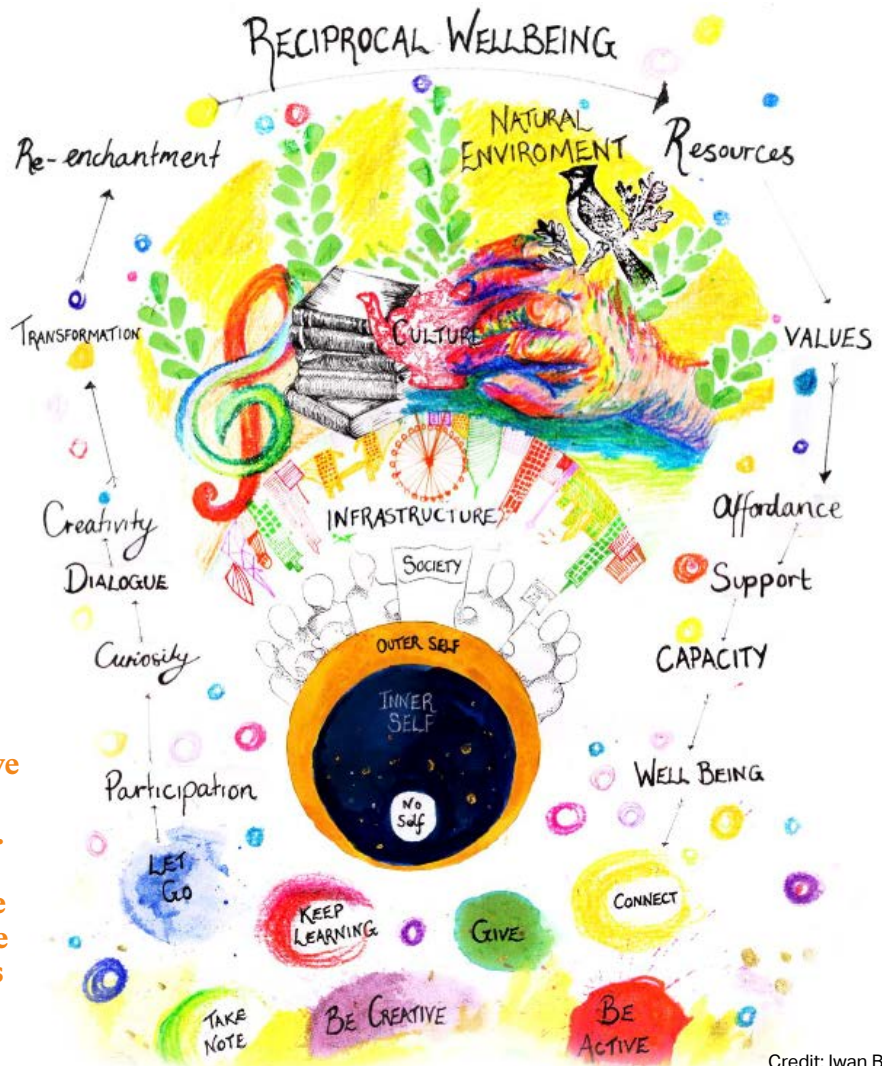 RECIPROCAL WELLBEING
Re-enchantment
NATURAL
ENVIROMENT
Resources
TRANSFORMATION
CULTURE
VALUES
Creativity
INFRASTRUCTURE
Affordance
DIALOGUE
SOCIETY
Support
Curiosity
OUTER SELF
CAPACITY
INNER
SELF
Participation
No
Self
WELL BEING
LET
GO
KEEP
LEARNING
GIVE
CONNECT
TAKE
NOTE
BE CREATIVE
BE
ACTIVE
Credit: Iwan B